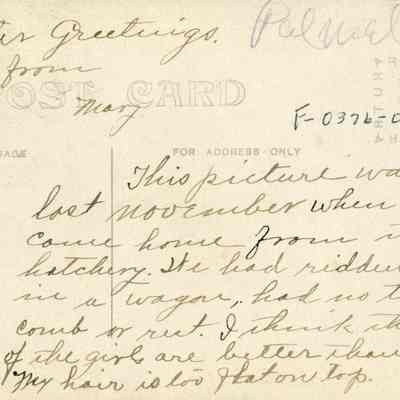 Greetings.
from
POST CARD
Mary
F-0376-0
FOR ADDRESS ONLY
This picture wa
last november when
come home from
hatchery. We had ridden
in a wagon, had no t
comb or rest. I think th
of the girls are better than
My hair is too flat on top.